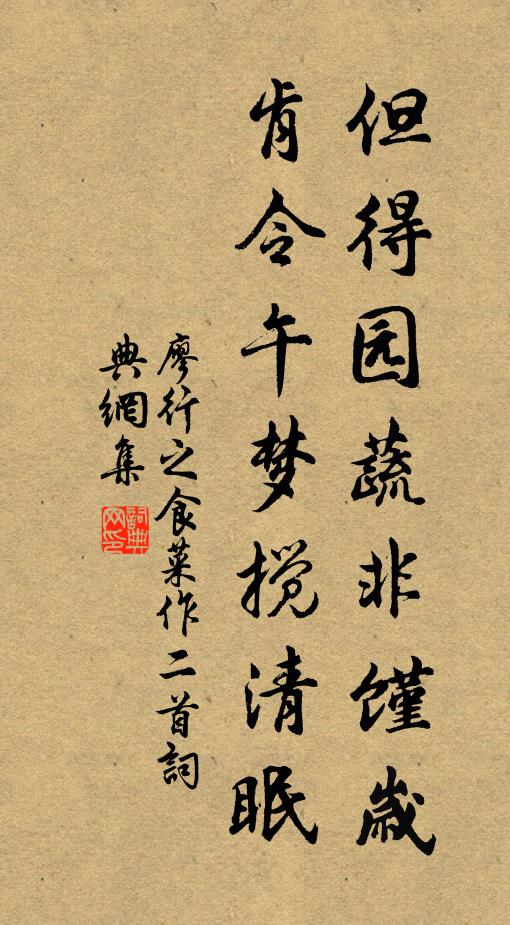 但得园蔬非馑歲
肯令午梦搅清眠
廖行之食菜作二首詞
典網集
詞典网印